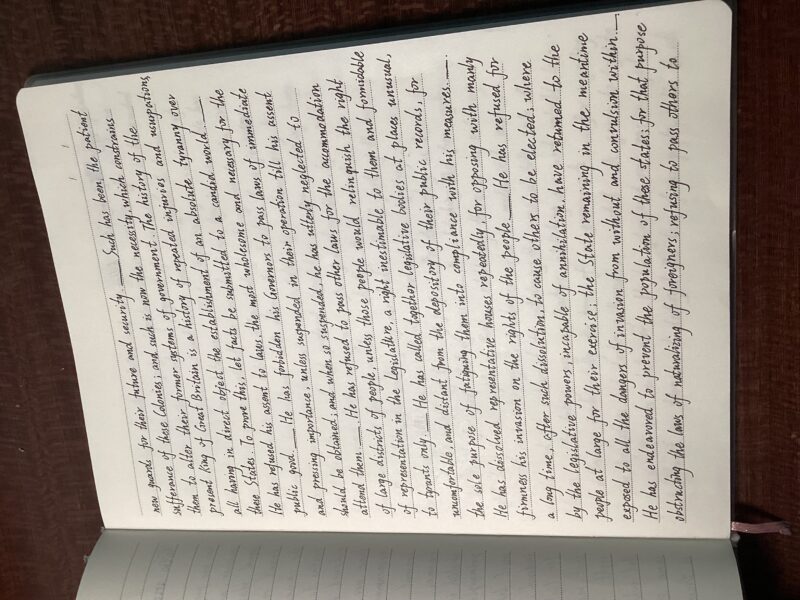 new guards for their future and security. —— Such has been the patient
sufferance of these Colonies; and such is now the necessity which constrains
them to alter their former systems of government. The history of the
present King of Great Britain is a history of repeated injuries and usurpations,
all having in direct object the establishment of an absolute tyranny over
these States. To prove this, let facts be submitted to a candid world. ——
He has refused his assent to laws, the most wholesome and necessary for the
public good. —— He has forbidden his Governors to pass laws of immediate
and pressing importance, unless suspended in their operation till his assent
should be obtained; and, when so suspended, he has utterly neglected to
attend them. —— He has refused to pass other laws for the accommodation
of large districts of people, unless those people would relinquish the right
of representation in the legislature, a right inestimable to them and formidable
to tyrants only. —— He has called together legislative bodies at places unusual,
uncomfortable, and distant from the depository of their public records, for
the sole purpose of fatiguing them into compliance with his measures. ——
He has dissolved representative houses repeatedly, for opposing with many
firmness his invasion on the rights of the people. —— He has refused for
a long time, after such dissolution, to cause others to be elected; where
by the legislative powers, incapable of annihilation, have returned to the
people at large for their exercise; the State remaining in the meantime
exposed to all the dangers of invasion from without and convulsion within. ——
He has endeavored to prevent the population of these states; for that purpose
obstructing the laws of naturalizing of foreigners; refusing to pass others to